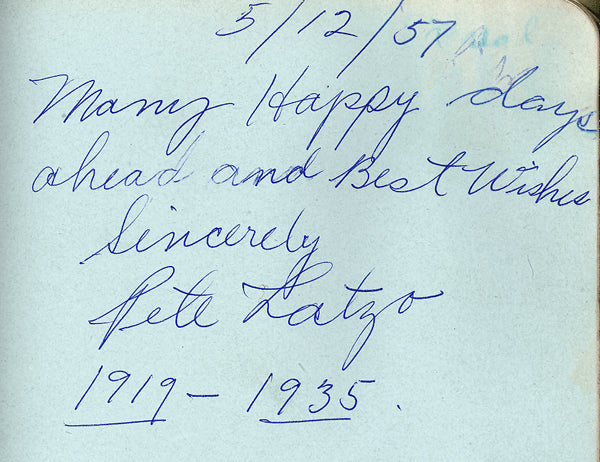 5/12/57
Many Happy days
ahead and Best Wishes
Sincerely
Pete Latzo
1919 - 1935.